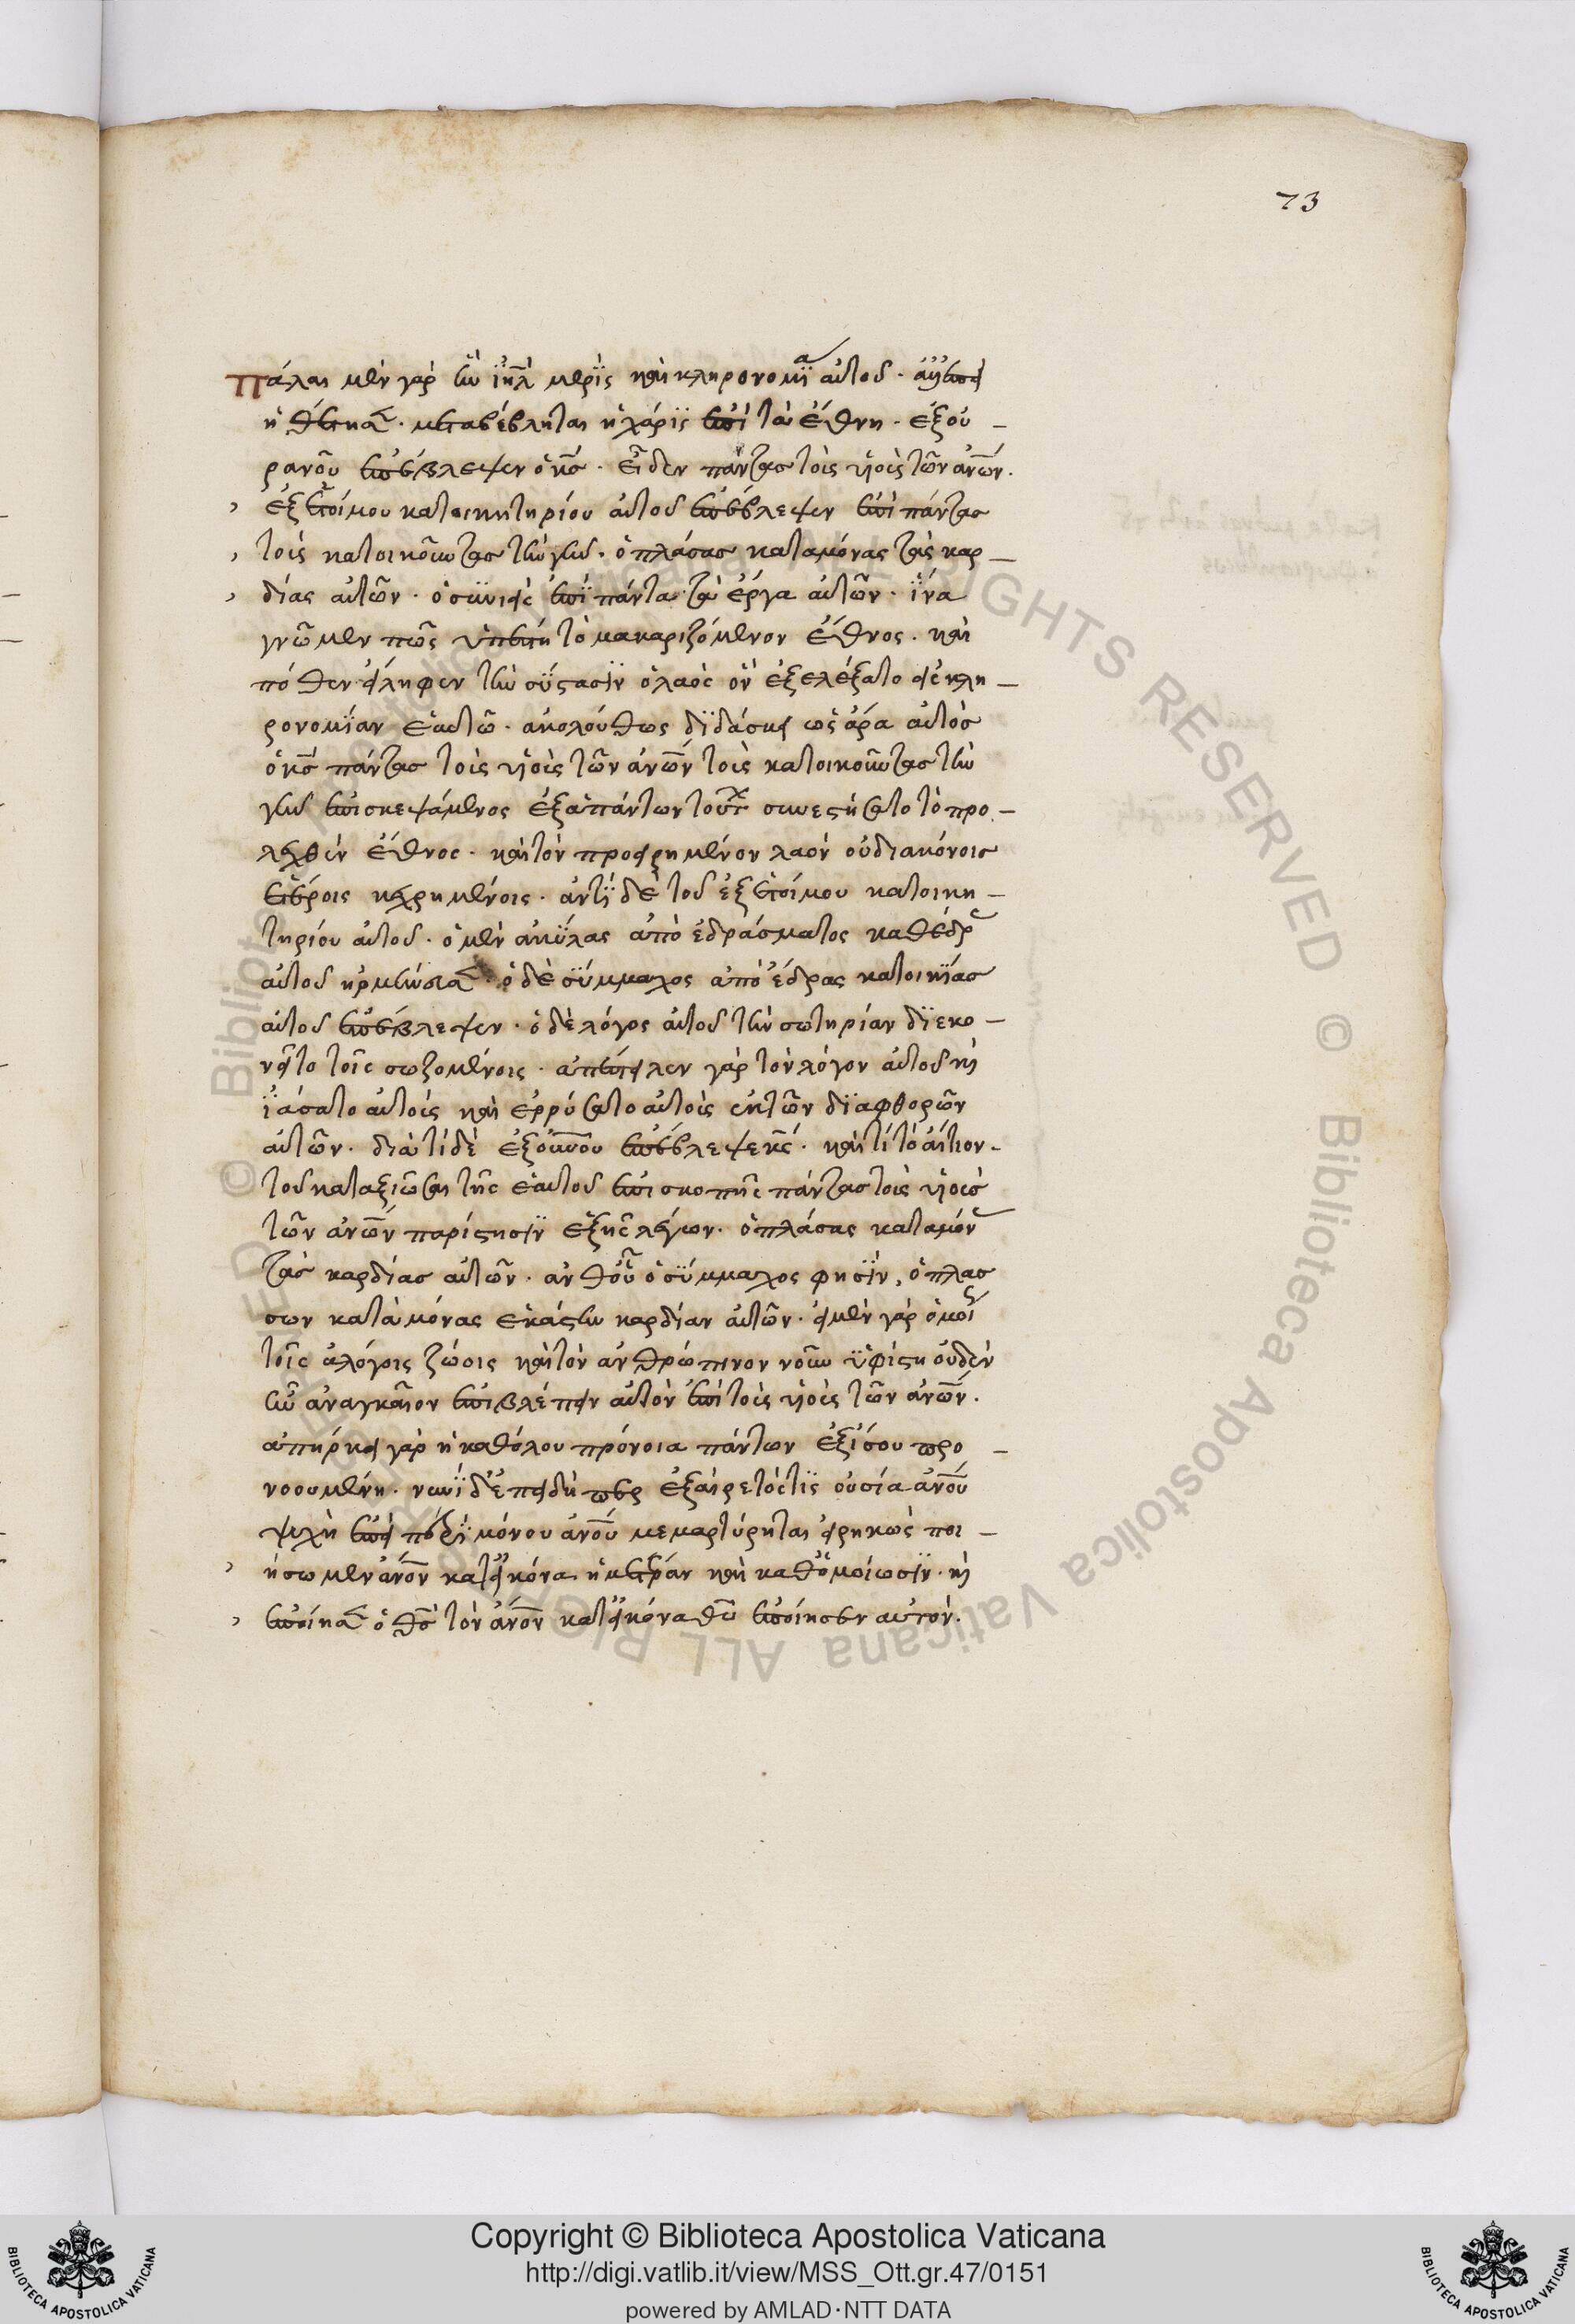 73
πάλαι μὲν γὰρ ἦν ἰηλ μερὶς καὶ κληρονομία αὐτοῦ.
ἠθέτησαν. μεταβέβληται ἡ χάρις ἐπὶ τὰ ἔθνη. ἐξ οὐ-
ρανοῦ ἐπέβλεψεν ὁ κς. εἶδεν πάντας τοὺς υἱοὺς τῶν ἀνων.
ἐξ ἑτοίμου κατοικητηρίου αὐτοῦ ἐπέβλεψεν ἐπὶ πάντας
τοὺς κατοικοῦντας τὴν γῆν. ὁ πλάσας καταμόνας τὰς καρ-
δίας αὐτῶν. ὁ συνιεὶς ἐπὶ πάντα τὰ ἔργα αὐτῶν. ἵνα
γνῶμεν πῶς ὑπέστη τὸ μακαριζόμενον ἔθνος. καὶ
πόθεν εἴληφεν τὴν σύστασιν ὁ λαὸς ὃν ἐξελέξατο εἰς κλη-
ρονομίαν ἑαυτῶ. ἀκολούθως διδάσκει ὡς ἄρα αὐτὸς
ὁ κς πάντας τοὺς υἱοὺς τῶν ἀνων τοὺς κατοικοῦντας τὴν
γῆν ἐπισκεψάμενος ἐξ ἁπάντων τούτων συνεστήσατο τὸ προ-
λεχθὲν ἔθνος. καὶ τὸν προειρημένον λαὸν οὐ διακόνοις
ἑτέροις κεχρημένοις. ἀντὶ δὲ τοῦ ἐξ ἑτοίμου κατοικη-
τηρίου αὐτοῦ. ὁ μὲν ἀκύλας ἀπὸ ἑδράσματος καθέδρας
αὐτοῦ ἡρμήνευσεν. ὁ δὲ σύμμαχος ἀπὸ ἕδρας κατοικίας
αὐτοῦ ἐπέβλεψεν. ὁ δὲ λόγος αὐτοῦ τὴν σωτηρίαν διεκο-
νεῖτο τοῖς σωζομένοις. ἀπέστειλεν γὰρ τὸν λόγον αὐτοῦ καὶ
ἰάσατο αὐτοὺς καὶ ἐρρύσατο αὐτοὺς ἐκ τῶν διαφθορῶν
αὐτῶν. διὰ τί δὲ ἐξ οὐνου ἐπέβλεψε κς. καὶ τί τὸ αἴτιον.
τοῦ καταξιῶσαι τῆς ἑαυτοῦ ἐπισκοπῆς πάντας τοὺς υἱοὺς
τῶν ἀνων παρίστησιν ἑξῆς λέγων. ὁ πλάσας καταμόνας
τὰς καρδίας αὐτῶν. ἀνθ οὗ ὁ σύμμαχος φησὶν, ὁ πλασ
σων κατὰ μόνας ἑκάστην καρδίαν αὐτῶν. εἰ μὲν γὰρ ὁμοίως
τοῖς ἀλόγοις ζώοις καὶ τὸν ἀνθρώπινον νοῦν ὑφίστη οὐδὲν
ἦν ἀναγκαῖον ἐπιβλέπειν αὐτὸν ἐπὶ τοὺς υἱοὺς τῶν ἀνων.
ἀπήρκει γὰρ ἡ καθόλου πρόνοια πάντων ἐξ ἴσου προ-
νοουμένη. νυνὶ δὲ ἐπειδήπερ ἐξαίρετός τις οὐσία ἀνου
ψυχὴ ἐπεὶ περὶ μόνου ἀνου μεμαρτύρηται εἰρηκὼς ποι-
ήσωμεν ἀνον κατ εἰκόνα ἡμετέραν καὶ καθ ὁμοίωσιν. καὶ
ἐποίησεν ὁ θς τὸν ἀνον κατ εἰκόνα θυ ἐποίησεν αὐτόν.
Copyright © Biblioteca Apostolica Vaticana
http://digi.vatlib.it/view/MSS_Ott.gr.47/0151
powered by AMLAD·NTT DATA